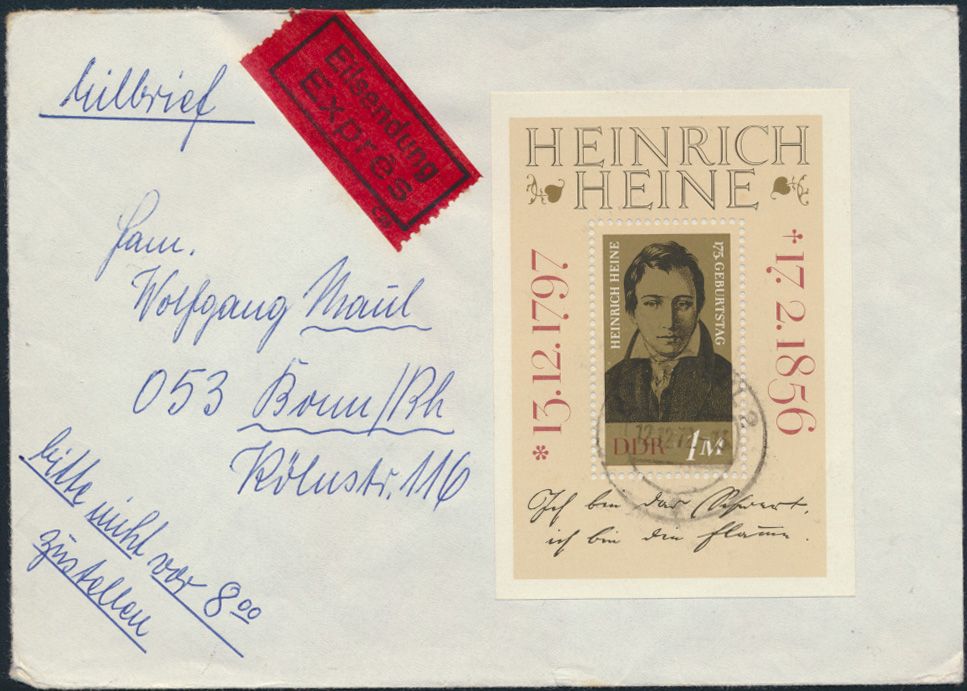 Eilbrief
Eilsendung
Exprès
Fam.
Wolfgang Maul
053 Bonn/Rh
Kölnstr. 116
bitte nicht vor 8⁰⁰
zustellen
HEINRICH
HEINE
* 13.12.1797
HEINRICH HEINE
175. GEBURTSTAG
DDR 1M
† 17.2.1856
Ich bin das Schwert,
ich bin die Flamme.